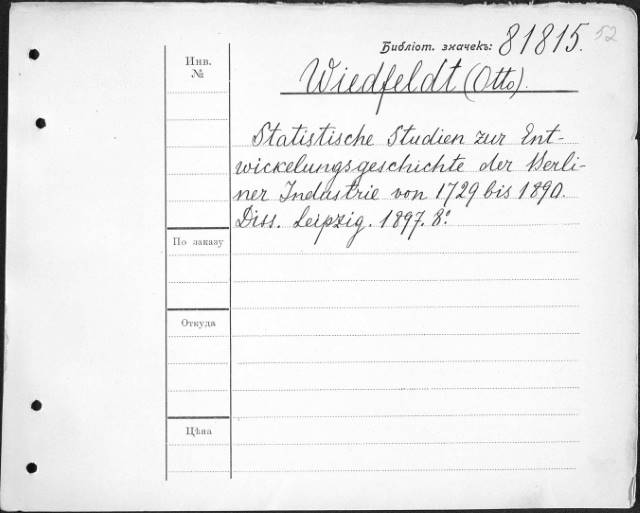 Библіот. значекъ: 81815. 52
Инв. №
Wiedfeldt (Otto).
Statistische Studien zur Ent-
wickelungsgeschichte der Berli-
ner Industrie von 1729 bis 1890.
Diss. Leipzig. 1897. 8º
По заказу
Откуда
Цѣна